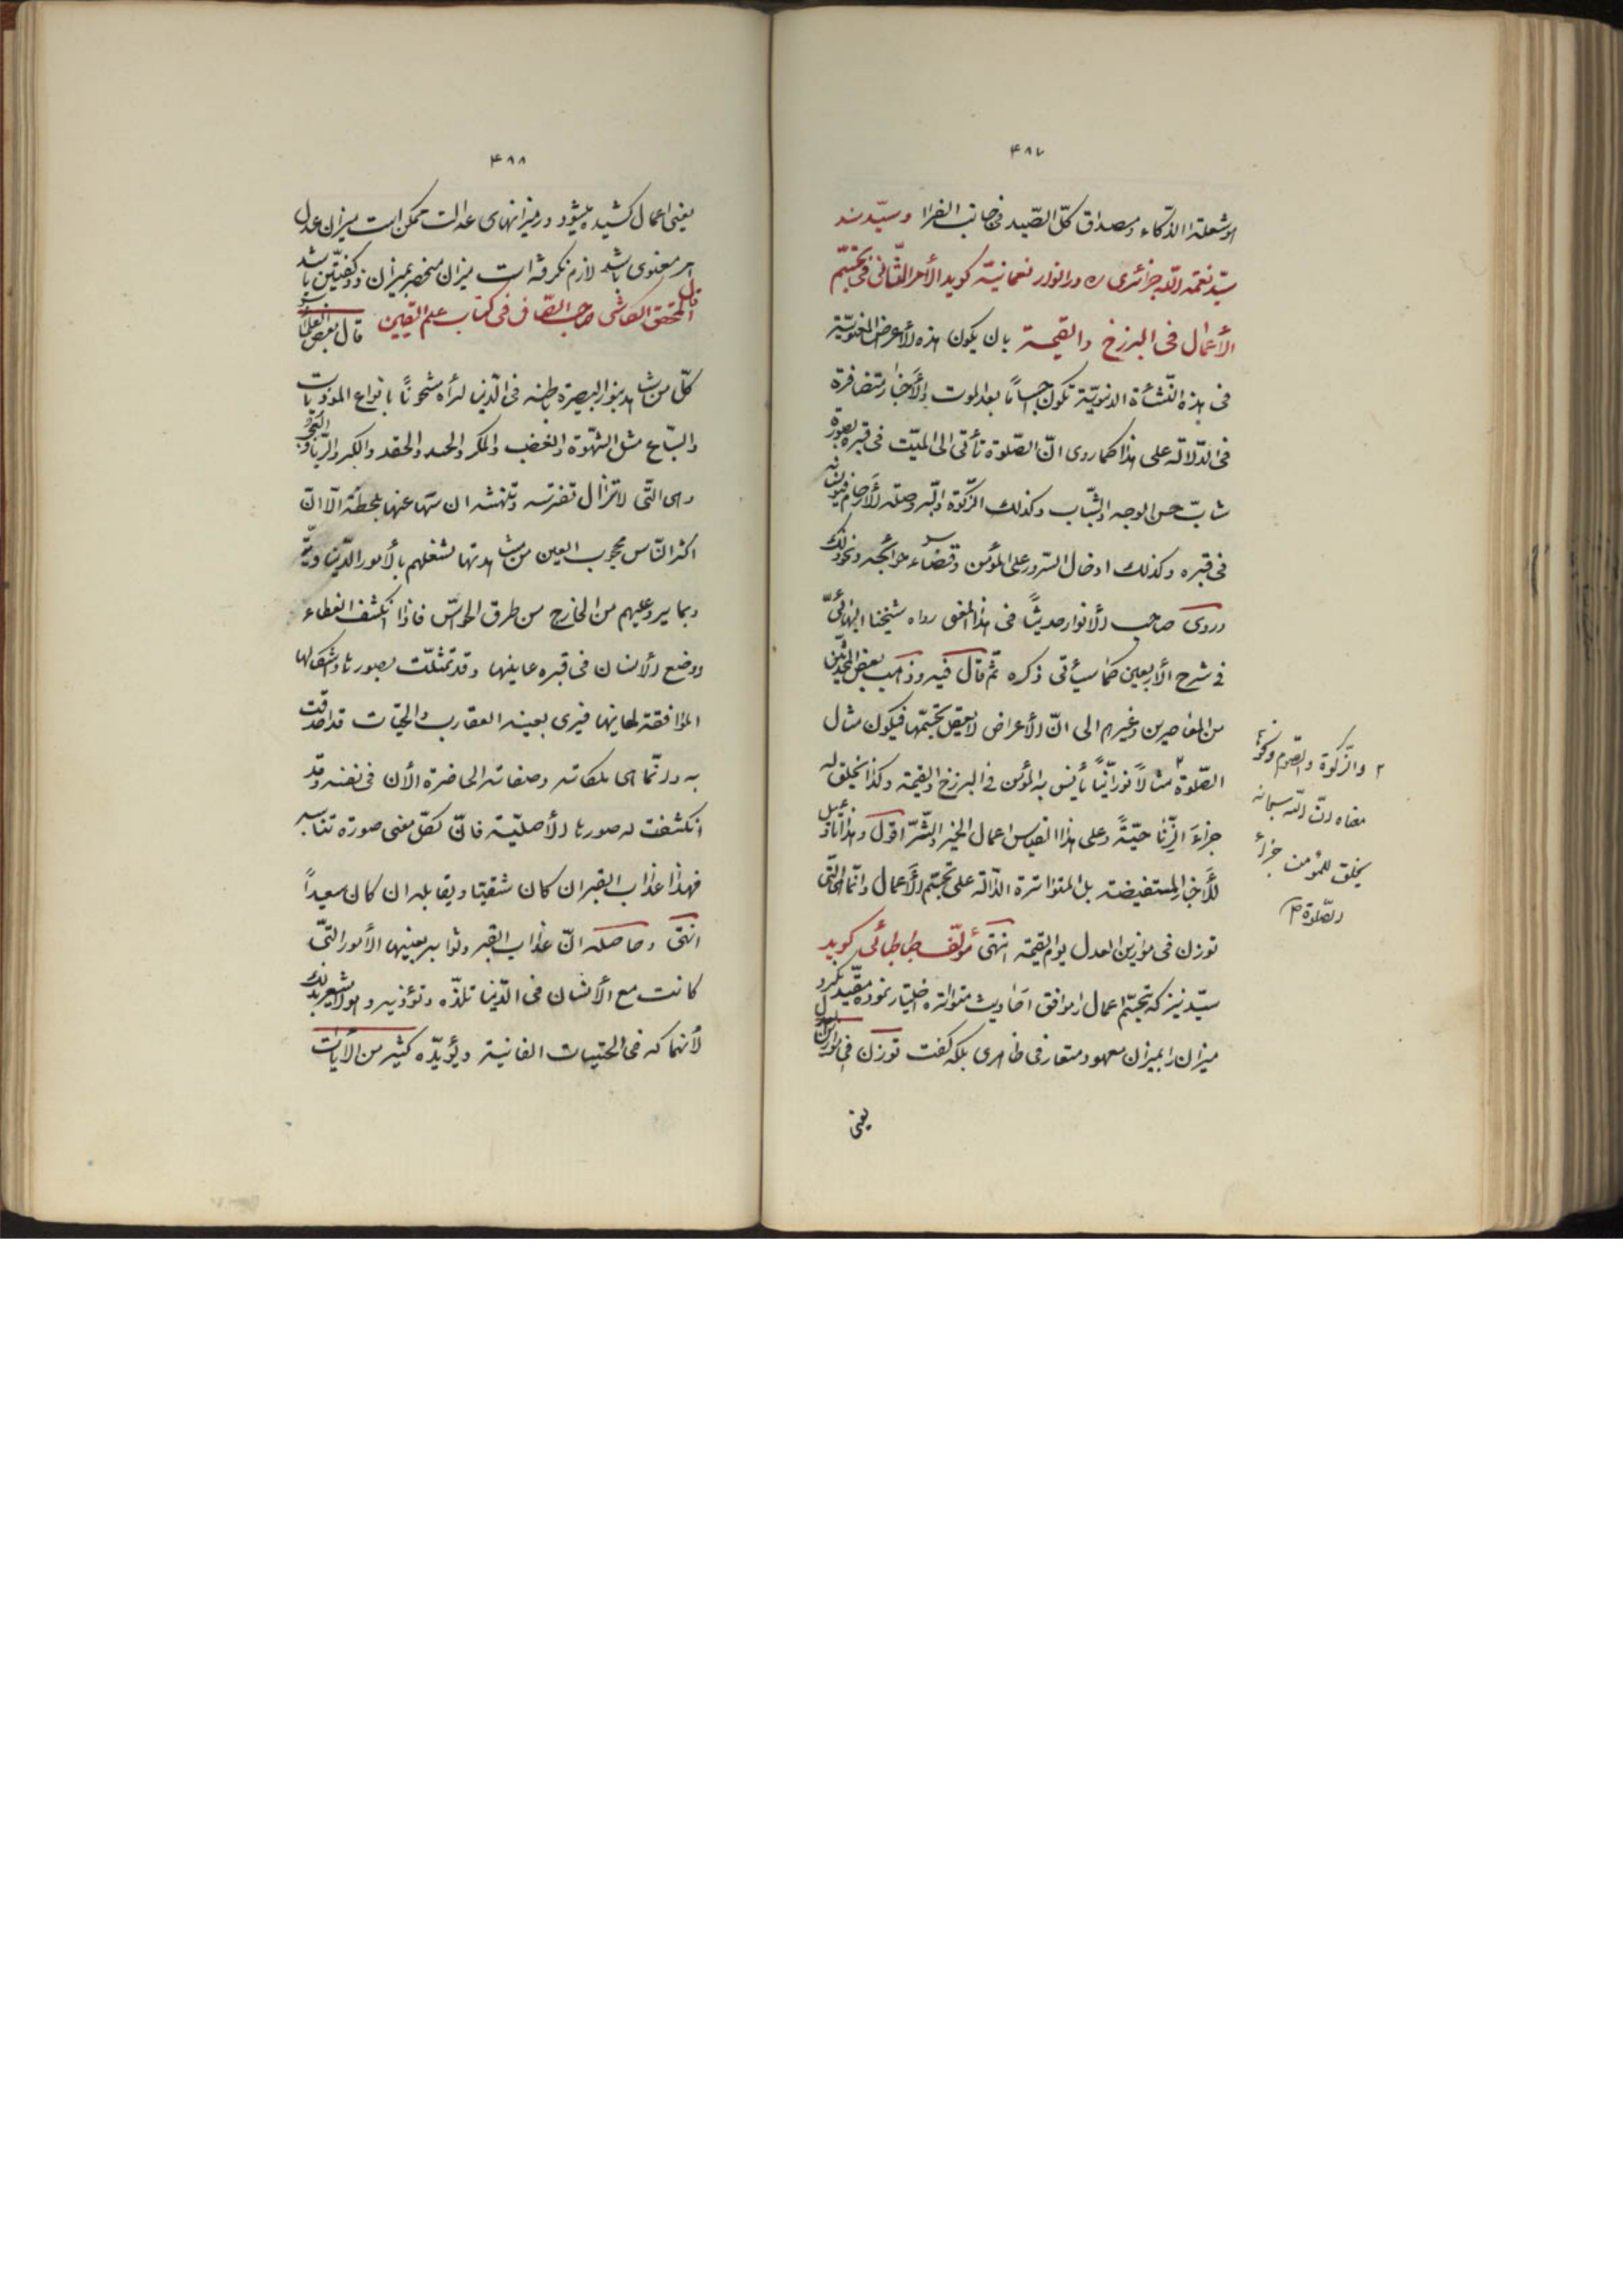 ۴۸۷
هو شعلة الذكاء ومصداق كلّ الصّيد فى جانب الفرا وسيّد سند
سيّد نعمة اللّه جزائرى ره در انوار نعمانيّه كويد الأمر الثّانى فى تجسّم
الأعمال فى البرزخ والقيمة بان يكون هذه الأعراض المعنويّة
فى هذه النّشأة الدنيويّة تكون اجساماً بعد الموت والأخبار متضافرة
فى الدّلالة على هذا كما روى انّ الصّلوة تأتى الى الميّت فى قبره بصورة
شابّ حسن الوجه والثّياب وكذلك الزّكوة والبّر وصلة الأرحام
فى قبره وكذلك ادخال السّرور على المؤمن وقضاء حوائجه ونحو ذلك
وروى صاحب الأنوار حديثاً فى هذا المعنى رواه شيخنا البهائىّ
فى شرح الأربعين كما سيأتى ذكره ثمّ قال فيه وذهب بعض المحدّثين
من المعاصرين وغيرهم الى انّ الأعراض لا يعقل تجسّمها فيكون مثال
الصّلوة ٢ مثالاً نورانيّاً يأنس به المؤمن فى البرزخ والقيمة وكذا يخلق له
جزاءَ الزّنا حيّةً وعلى هذا القياس اعمال الخير والشّر اقول وهذا تأويل
للأخبار المستفيضة بل المتواترة الدّالة على تجسّم الأعمال وانّها هى الّتى
توزن فى موازين العدل يوم القيمة انتهى مؤلّف طباطبائى كويد
سيّد نيز كه تجسّم اعمال را موافق احاديث متواتره اختيار نموده مقيّد نكرد
ميزان را بميزان معهود متعارفى ظاهرى بلكه كفت توزن فى موازين العدل
يعنى
٢ والزّكوة والصّوم ونحوها
معناه انّ اللّه سبحانه
يخلق للمؤمن جزاء
الصّلوة ص
۴۸۸
يعنى اعمال كشيده ميشود در ميزانهاى عدالت ممكن است ميزان عدل
امر معنوى باشد لازم نكرفته است ميزان منحصر بميزان ذو كفّتين باشد
قال المحقق الكاشى صاحب الصّافى فى كتاب علم اليقين قال بعض العلماء
كلّ من شاهد بنور البصيرة باطنه فى الدّنيا لرأه مشحوناً بانواع الموذيات
والسّباع مثل الشّهوة والغضب والمكر والحسد والحقد والكبر والرّيا والعجب
وهى الّتى لا تزال تفترسه وتنهشه ان سها عنها بلحظة الّا انّ
اكثر النّاس محجوب العين من مشاهدتها لشغلهم بالأمور الدّنياويّة
وبما يرد عليهم من الخارج من طرق الحواسّ فاذا انكشف الغطاء
ووضع الأنسان فى قبره عاينها وقد تمثّلت بصورها وشكلها
الموافقة لمعانيها فيرى بعينه العقارب والحيّات قد احدقت
به وانّما هى ملكاته وصفاته الحاضرة الأن فى نفسه وقد
انكشفت له صورها الأصليّة فانّ لكلّ معنى صورة تناسبه
فهذا عذاب القبر ان كان شقيّا ويقابله ان كان سعيداً
انتهى وحاصله انّ عذاب القبر وثوابه بعينها الأمور الّتى
كانت مع الأنسان فى الدّنيا تلذّه وتؤذيه وهو لا يشعر بذلك
لأنهماكه فى الحسّيات الفانية ويؤيّده كثير من الأيات